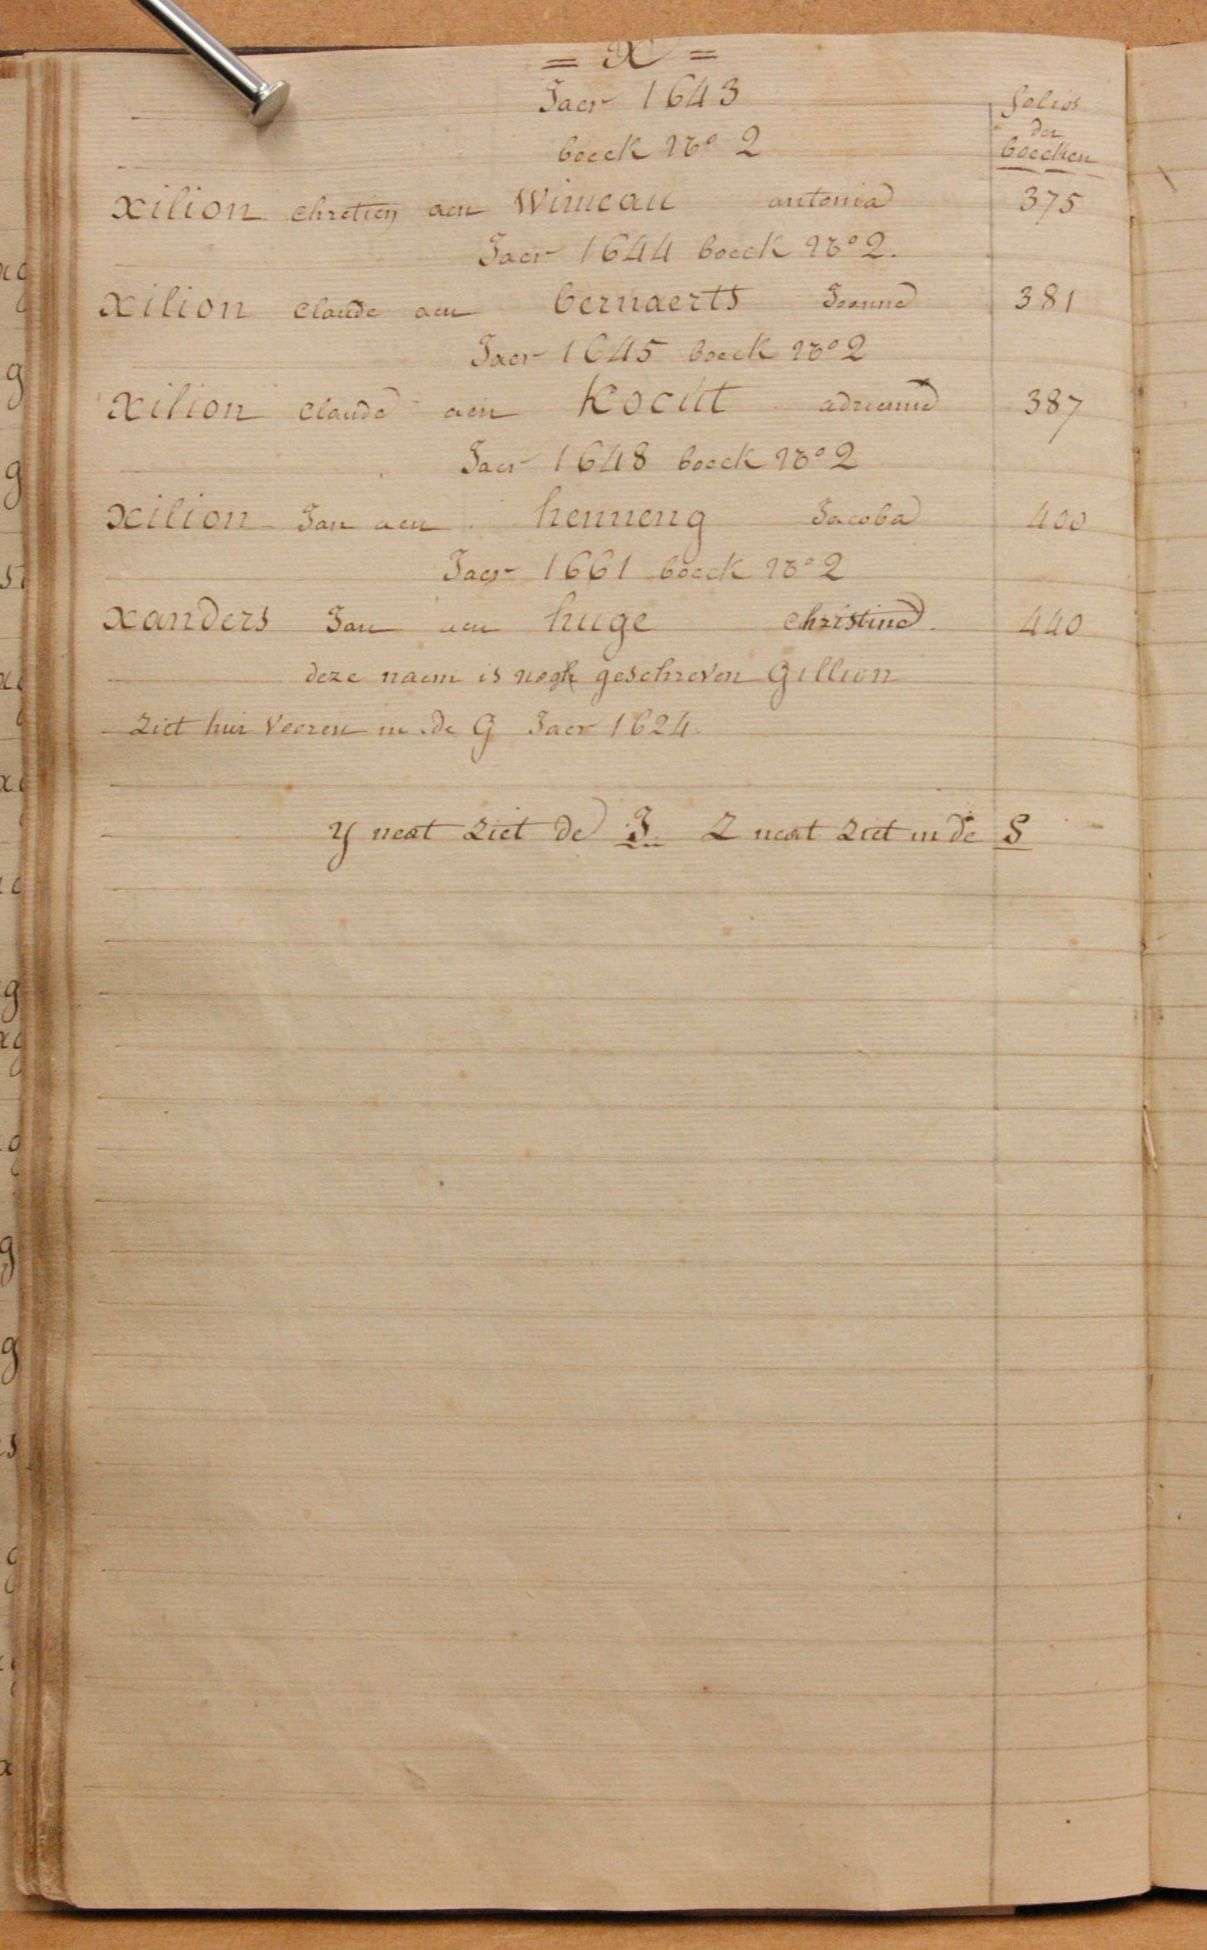 = X =
Jaer 1643
folios
der
boecken
boeck No 2
xilion chretien aen Wimeau antonia 375
Jaer 1644 boeck No 2.
xilion claude aen bernaerts Joanna 381
Jaer 1645 boeck No 2
xilion claude aen Kocht adrienne 387
Jaer 1648 boeck No 2
xilion Jan aen henneng Jacoba 400
Jaer 1661 boeck No 2
xanders Jan aen huge christine. 440
deze naem is nogh geschreven Gillion
ziet hier veoren in de G Jaer 1624.
Y neat ziet de J. Z neat ziet in de S